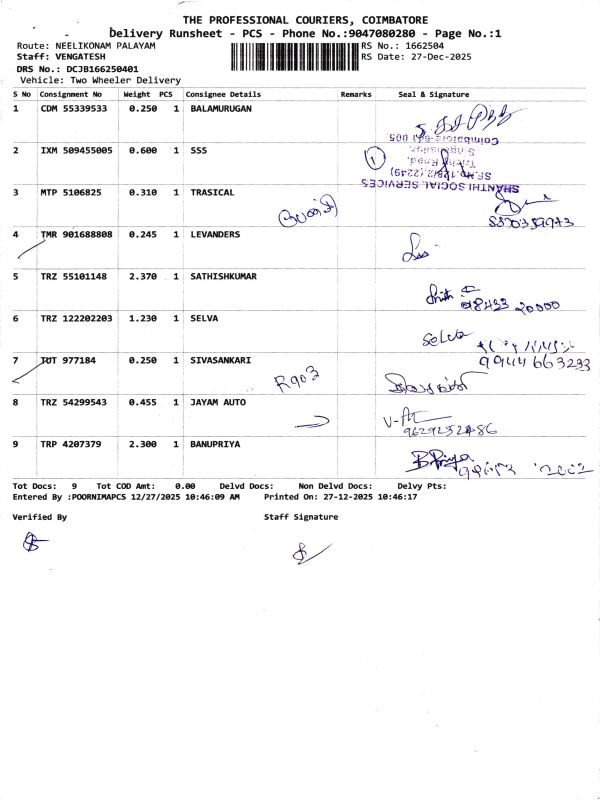 THE PROFESSIONAL COURIERS, COIMBATORE
Delivery Runsheet - PCS - Phone No.:9047080280 - Page No.:1
Route: NEELIKONAM PALAYAM RS No.: 1662504
Staff: VENGATESH RS Date: 27-Dec-2025
DRS No.: DCJB166250401
Vehicle: Two Wheeler Delivery
S No Consignment No Weight PCS Consignee Details Remarks Seal & Signature
1 CDM 55339533 0.250 1 BALAMURUGAN
2 IXM 509455005 0.600 1 SSS
1
SHANTHI SOCIAL SERVICES
SF.No.128/2,(2249)
Trichy Road,
Singanallur,
Coimbatore-641 005
3 MTP 5106825 0.310 1 TRASICAL
4 TMR 901688808 0.245 1 LEVANDERS
5 TRZ 55101148 2.370 1 SATHISHKUMAR
98433 20000
6 TRZ 122202203 1.230 1 SELVA
Selva
7 TUT 977184 0.250 1 SIVASANKARI
R903
9944663233
8 TRZ 54299543 0.455 1 JAYAM AUTO
9629232486
9 TRP 4207379 2.300 1 BANUPRIYA
B.Priya
Tot Docs: 9 Tot COD Amt: 0.00 Delvd Docs: Non Delvd Docs: Delvy Pts:
Entered By :POORNIMAPCS 12/27/2025 10:46:09 AM Printed On: 27-12-2025 10:46:17
Verified By Staff Signature